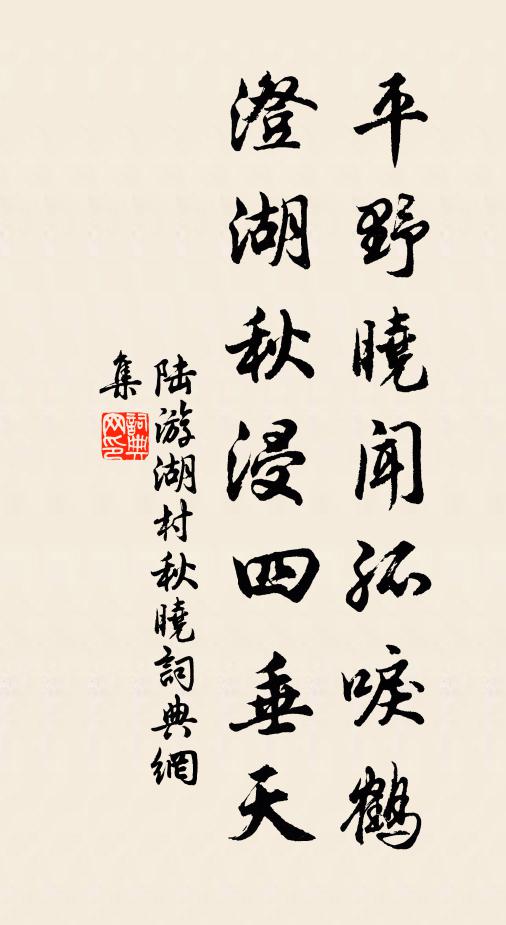 平野曉聞孤唳鶴
澄湖秋浸四垂天
陆游湖村秋曉詞典網
集
詞典網印